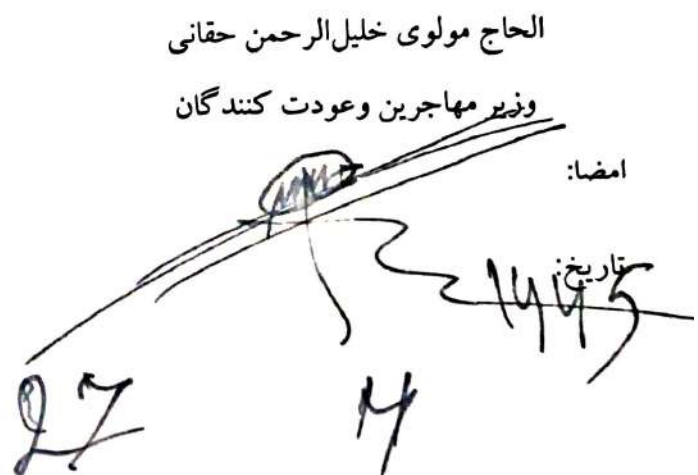 الحاج مولوی خلیل‌الرحمن حقانی
وزیر مهاجرین وعودت کنندگان
امضا:
تاریخ: